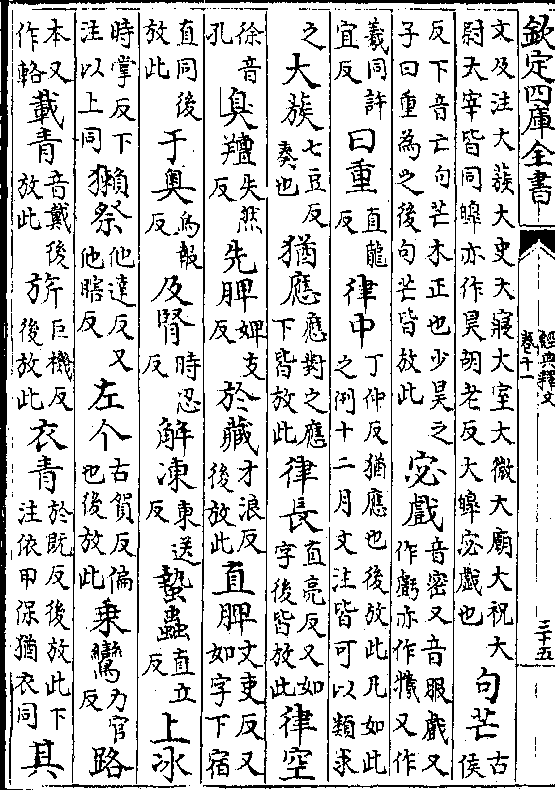 欽定四庫全書
經典釋文
卷十一
三十五
文及注大蔟大史大寢大室大微大廟大祝大尉大宰皆同皥亦作昊胡老反大皥宓戲也句芒古侯
反下音亡句芒木正也少昊之子曰重為之後句芒皆放此宓戲音密又音服戲又作虧亦作犧又作
羲同許宜反曰重直龍反律中丁仲反猶應也後放此凡如此之例十二月文注皆可以類求
之大蔟七豆反奏也猶應應對之應下皆放此律長直亮反又如字後皆放此律空
徐音孔臭羶失然反先脾婢支反於藏才浪反後放此直脾丈吏反又如字下宿
直同後放此于奧烏報反及腎時忍反解凍東送反蟄蟲直立反上冰
時掌反下注以上同獺祭他達反又他瞎反左个古賀反偏也後放此乘鸞力官反路
本又作輅載青音戴後放此旂巨機反後放此衣青於既反後放此下注依甲保猶衣同其